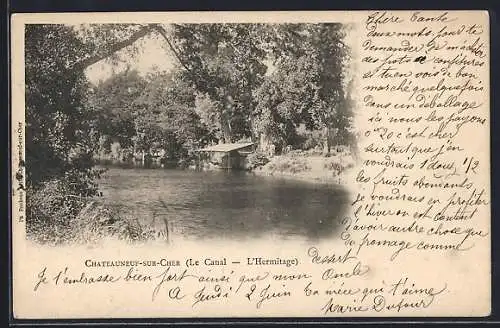 Chère Tante
Deux mots pour te
demander de m'acheter
des pots a confitures
si tu en vois de bon
marché quelquefois
dans un déballage
ici nous les payons
0ᶠ20 c'est cher
surtout que j'en
voudrais 1 douz 1/2
les fruits abondants
je voudrais en profiter
l'hiver on est content
d'avoir autre chose que
du fromage comme
dessert
CHATEAUNEUF-SUR-CHER (Le Canal — L'Hermitage)
Je t'embrasse bien fort ainsi que mon Oncle
A Jeudi 2 Juin Ta nièce qui t'aime
Marie Dufour